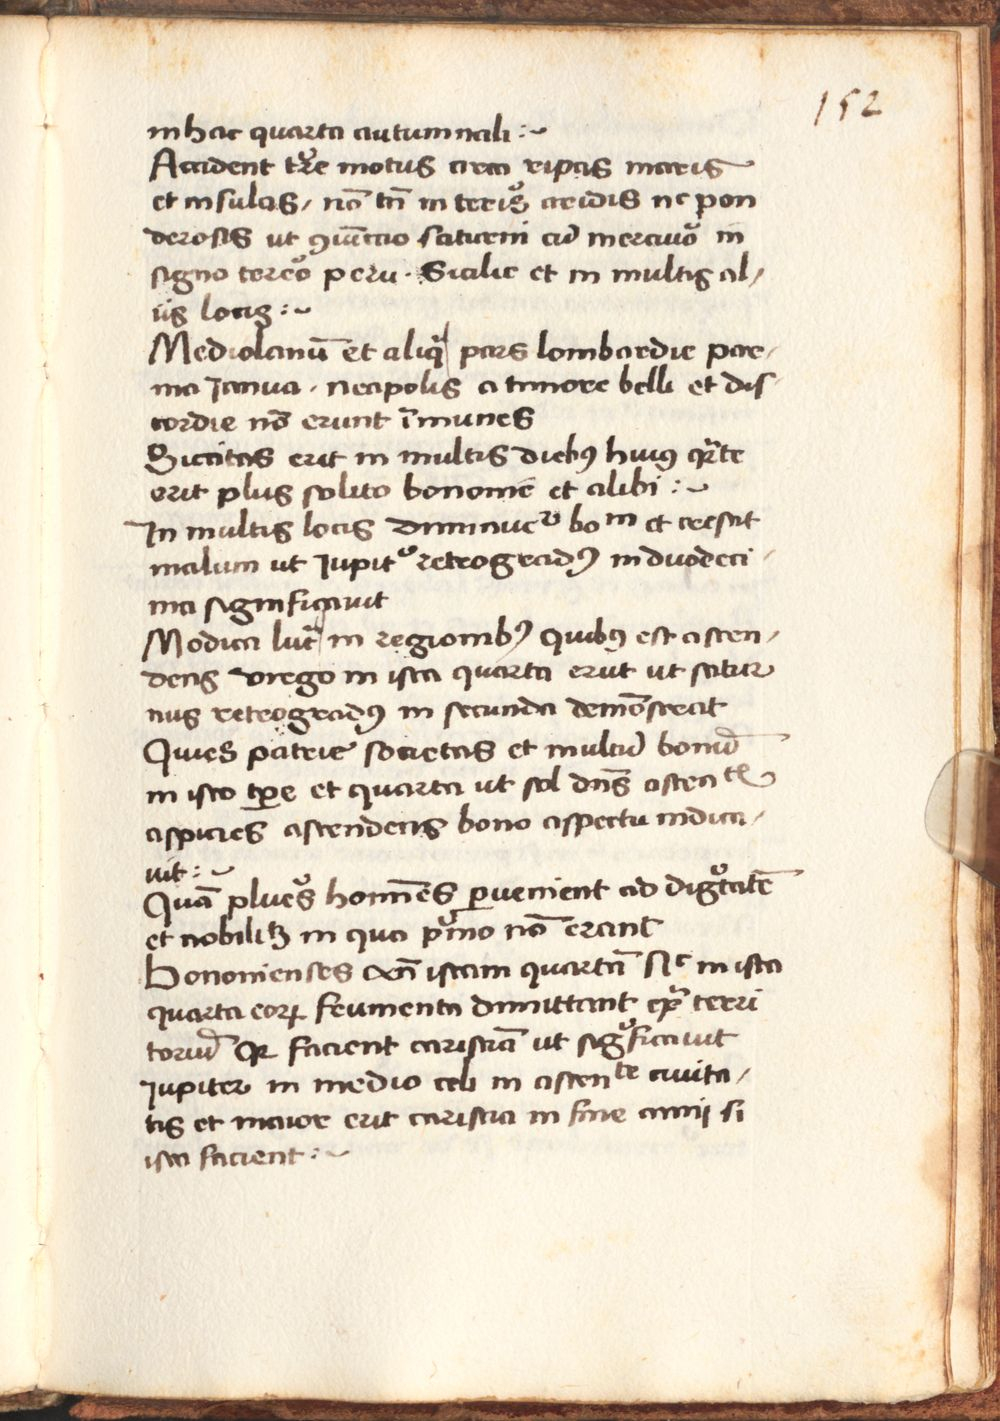 152
in hac quarta autumnali :~
Accident tr̄e motus circa ripas maris
et insulas, nō tn̄ in terris aridis nc pon
derosis ut ꝯiūctio saturni cū mercurio in
signo terreo peru. Sicilie et in multis al,
iis locis :~
Mediolanū et aliq̄ pars lombardie par,
ma Janua. neapolis a timore belli et dis,
cordie nō erunt īmunes
Siccitas erit in multis diebꝰ huiꝰ qr̄te
erit plus solito bononie et alibi :~
In multis locis diminuer bom et crescit
malum ut Jupitᵒ retrogradꝰ in duodeci,
ma significavit
Modica lucr̄ in regionibꝰ quibꝰ est ascen,
dens virgo in ista quarta erūt ut satur
nus retrogradꝰ in secunda demōstrat
Quies patrie societas et multū bonū
in isto tp̄re et quarta ut sol dn̄s ascentis
aspiciēs ascendens bono aspectu indica,
vit :~
Quā plures homines pervenient ad dignitatē
et nobilitꝫ in qua primo nō erant
Bononienses istam quartā Nc in ista
quarta eorꝝ frumenta dimittant ex̄ terri
toriū Qꝛ facient caristiā ut significavit
Jupiter in medio celi in ascente civita,
tis et maior erit caristia in fine anni si
ista facient :~